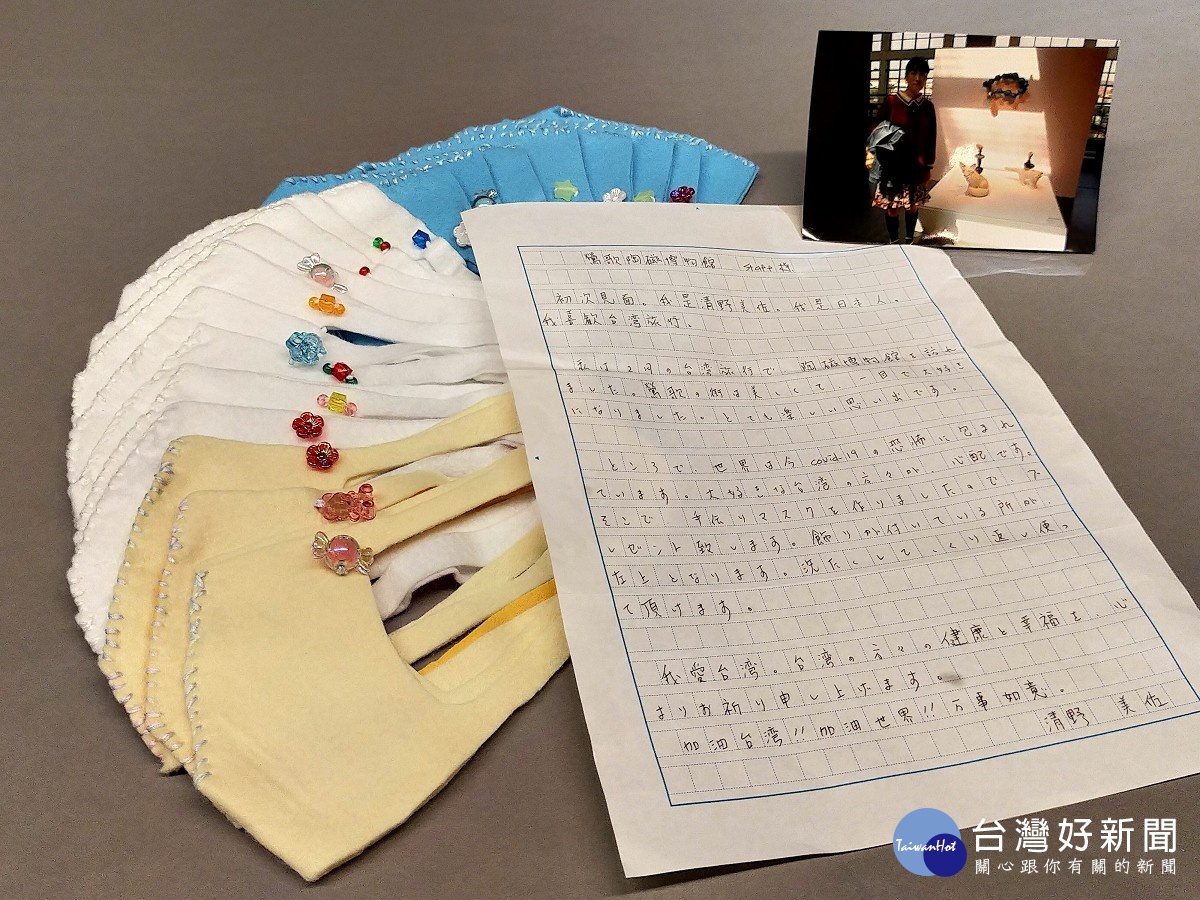 鶯歌陶磁博物館 staff 様
初次見面。我是清野美佐。我是日本人。
我喜歡台湾旅行。
私は2月の台湾旅行で、陶磁博物館を訪れ
ました。鶯歌の街は美しくて、一目で大好き
になりました。とても楽しい思い出です。
ところで、世界は今covid-19の恐怖に包まれ
ています。大好きな台湾の方々が、心配です。
そこで、手伝りマスクを作りましたので、プ
レゼント致します。飾りが付いている所が、
左上となります。洗たくしてくり返し使っ
て頂けます。
我愛台湾。台湾の方々の健康と幸福を、心
よりお祈り申し上げます。
加油台湾!!加油世界!!万事如意。
清野 美佐
TaiwanHot
台灣好新聞
關心跟你有關的新聞